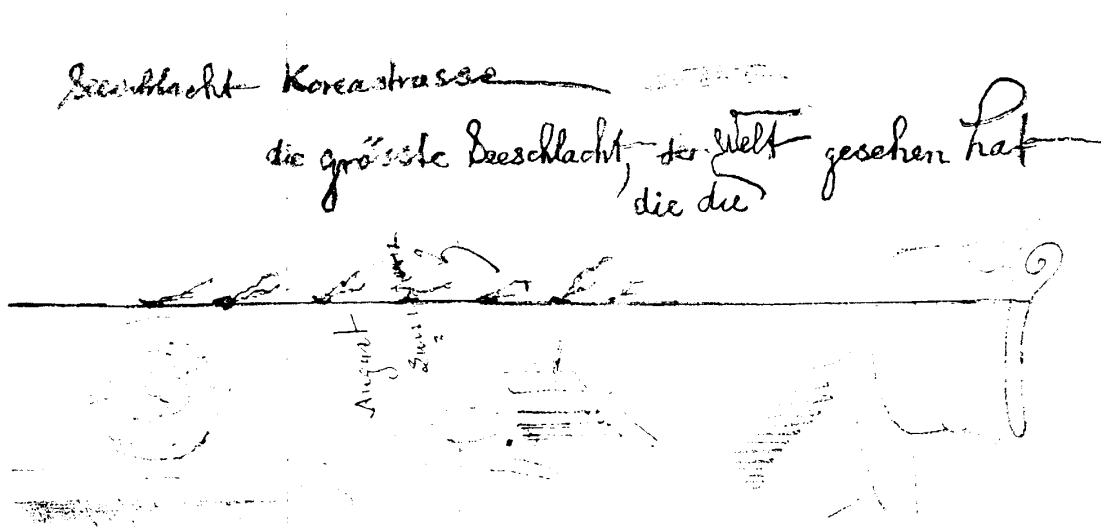 Seeschlacht Koreastrasse
die grösste Seeschlacht, der Welt gesehen hat
die die
August